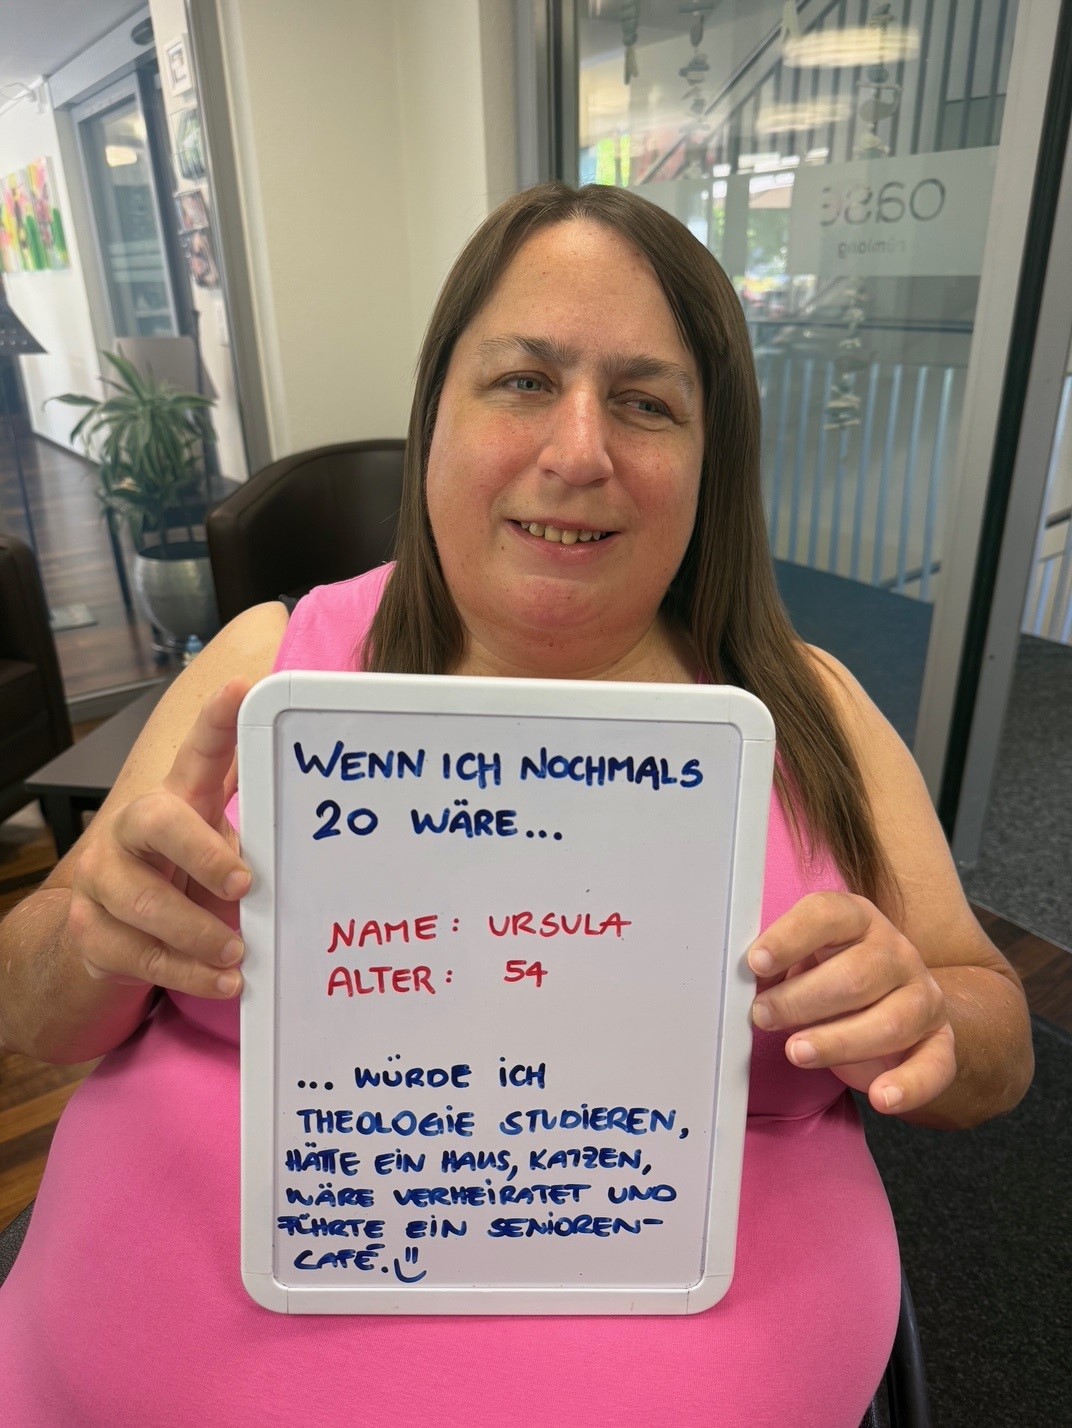 oase
rümlang
WENN ICH NOCHMALS
20 WÄRE...
NAME: URSULA
ALTER: 54
... WÜRDE ICH
THEOLOGIE STUDIEREN,
HÄTTE EIN HAUS, KATZEN,
WÄRE VERHEIRATET UND
FÜHRTE EIN SENIOREN-
CAFÉ.